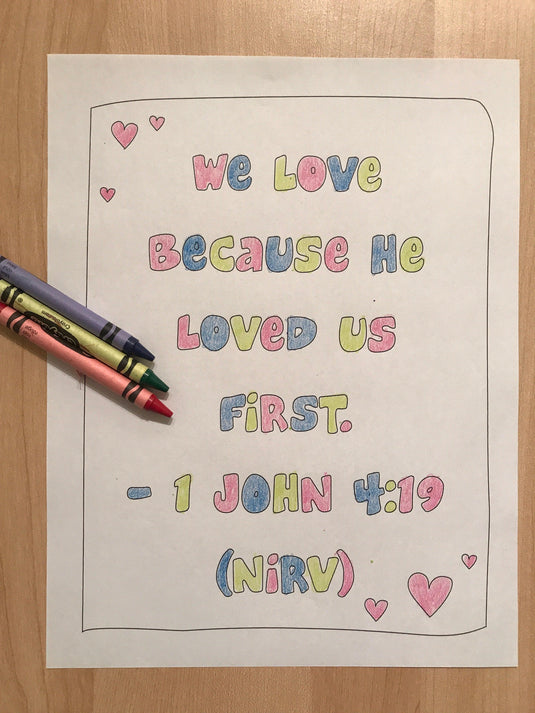 We Love
Because He
Loved us
First.
- 1 John 4:19
(NiRV)